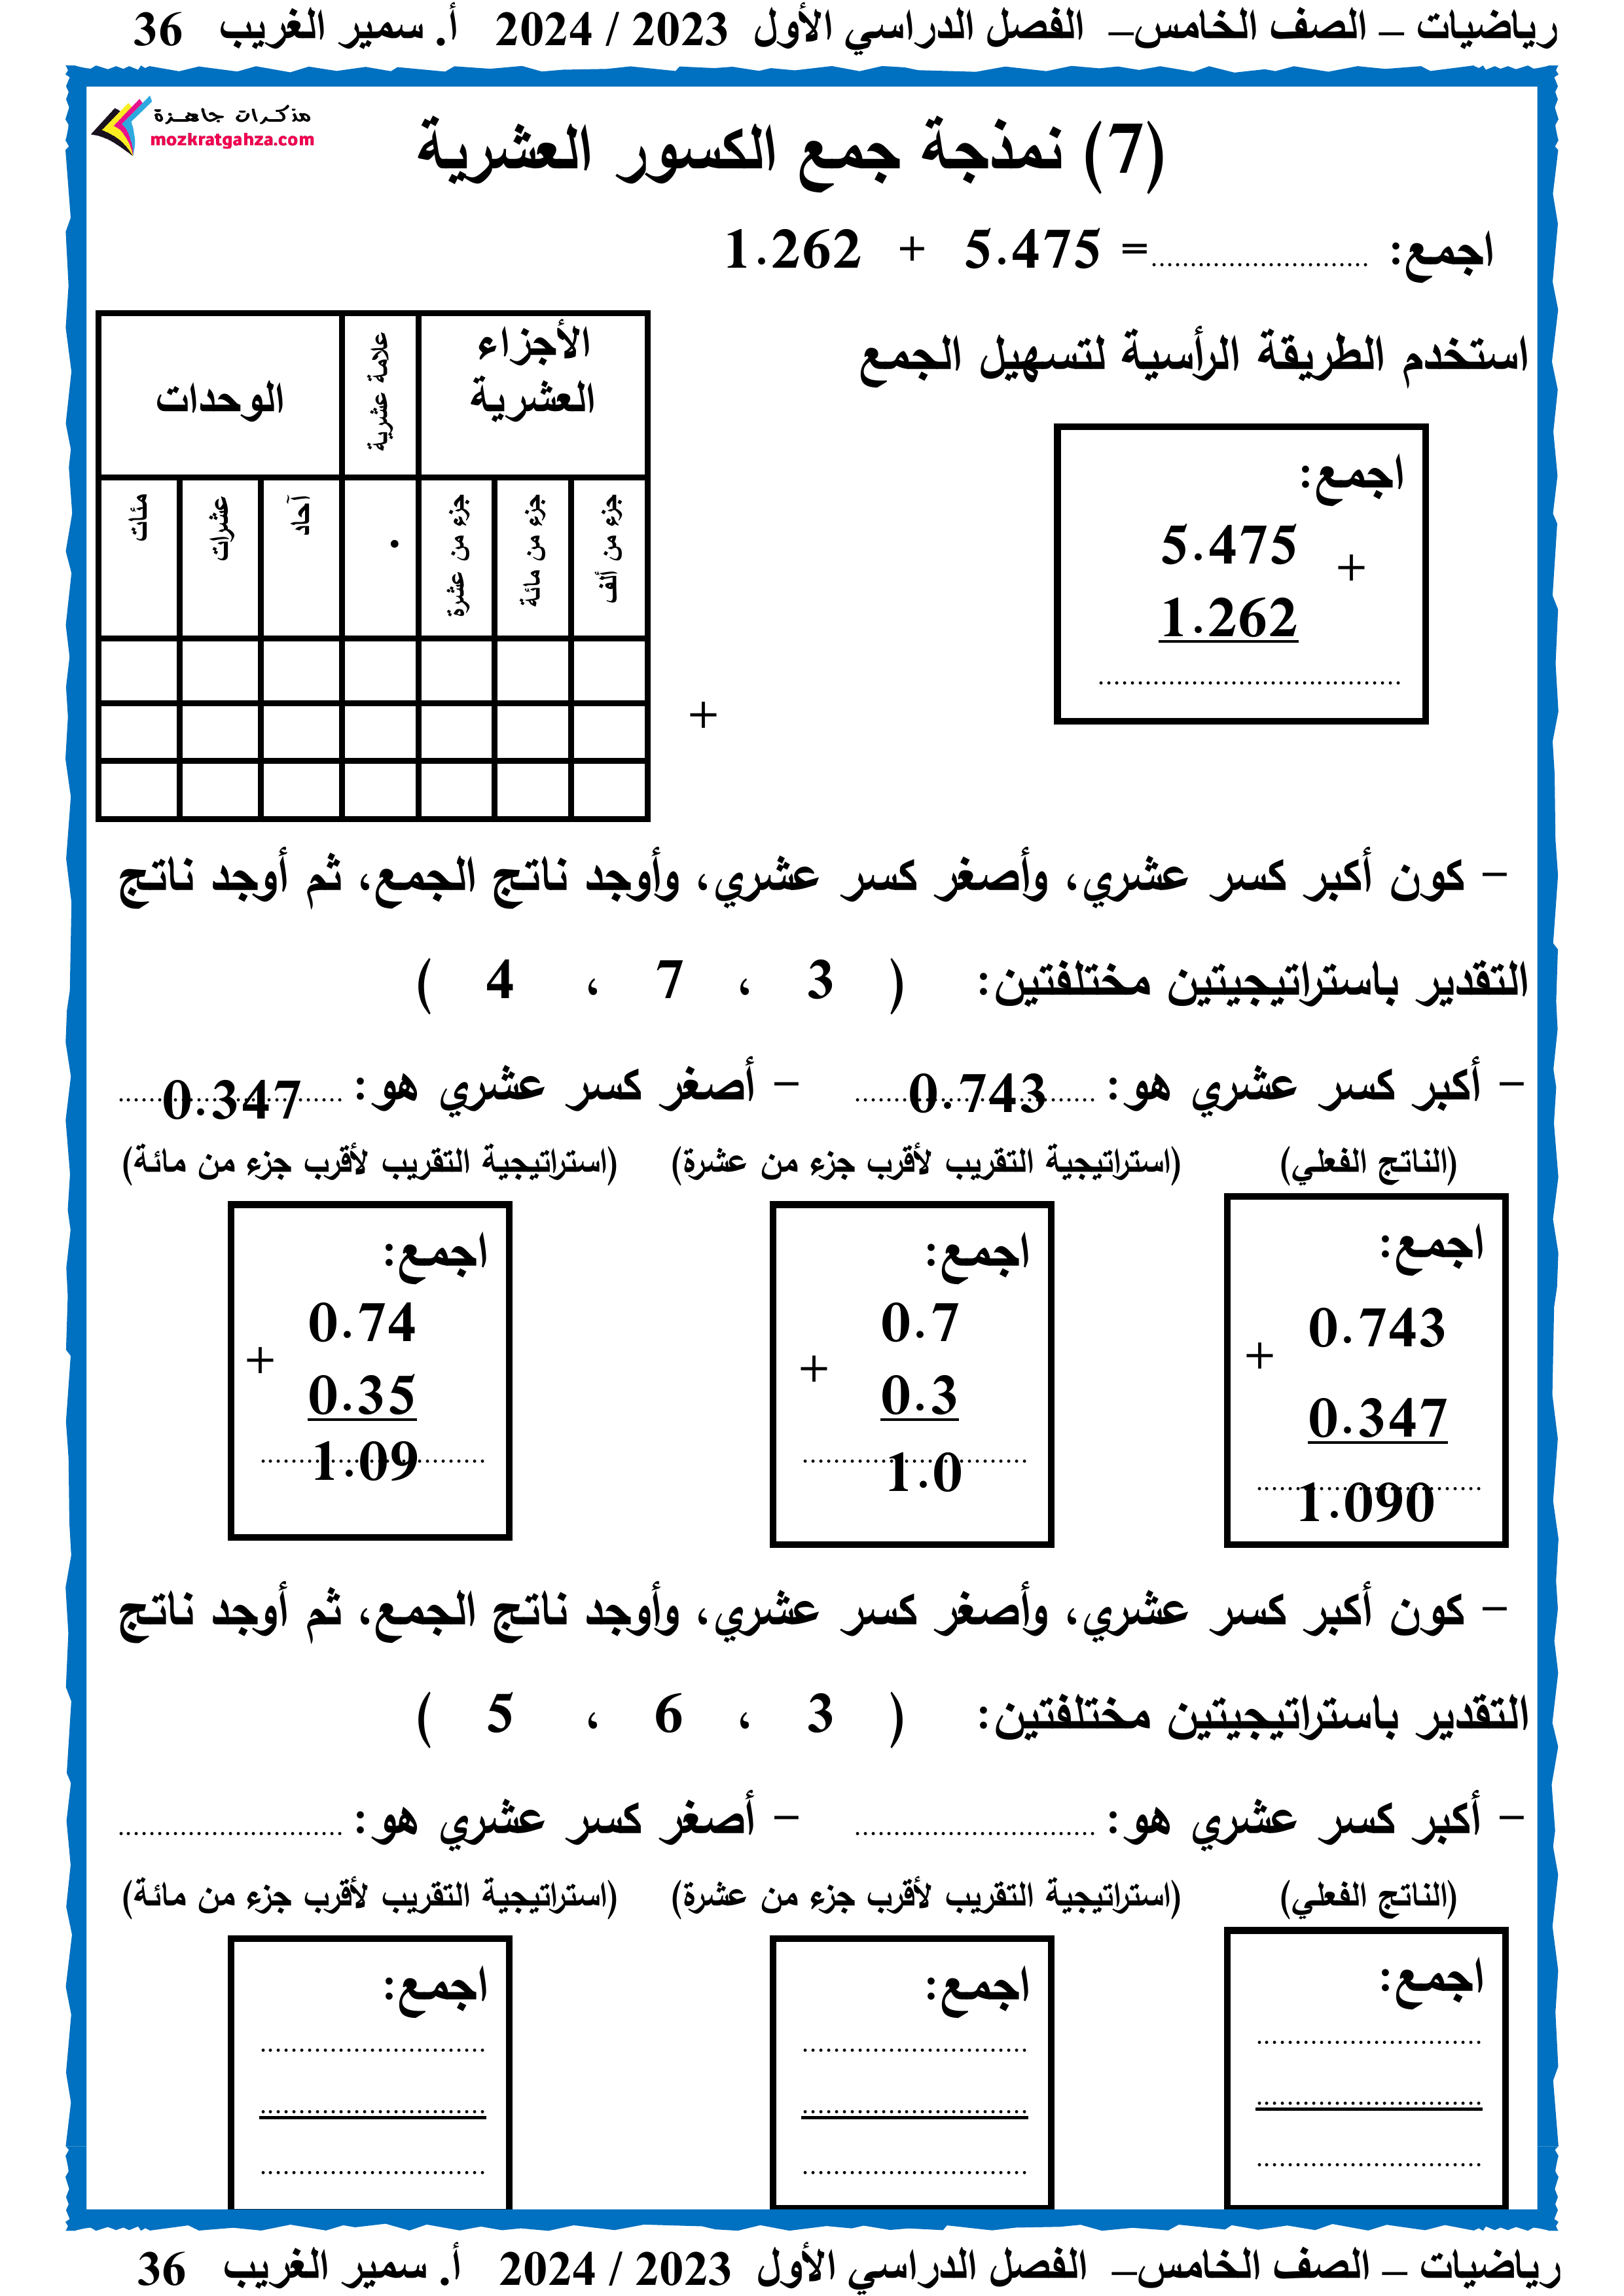 رياضيات – الصف الخامس– الفصل الدراسي الأول 2023 / 2024 أ. سمير الغريب 36
مذكرات جاهزة
mozkratgahza.com
(7) نمذجة جمع الكسور العشرية
اجمع: ............................ = 5.475 + 1.262
استخدم الطريقة الرأسية لتسهيل الجمع
الوحدات علامة عشرية الأجزاء العشرية
مئات عشرات آحاد . جزء من عشرة جزء من مائة جزء من ألف
+
اجمع:
5.475
+
1.262
.......................................
– كون أكبر كسر عشري، وأصغر كسر عشري، وأوجد ناتج الجمع، ثم أوجد ناتج
التقدير باستراتيجيتين مختلفتين: ( 3 ، 7 ، 4 )
– أكبر كسر عشري هو: 0.743 – أصغر كسر عشري هو: 0.347
(الناتج الفعلي) (استراتيجية التقريب لأقرب جزء من عشرة) (استراتيجية التقريب لأقرب جزء من مائة)
اجمع:
0.743
+
0.347
1.090
اجمع:
0.7
+
0.3
1.0
اجمع:
0.74
+
0.35
1.09
– كون أكبر كسر عشري، وأصغر كسر عشري، وأوجد ناتج الجمع، ثم أوجد ناتج
التقدير باستراتيجيتين مختلفتين: ( 3 ، 6 ، 5 )
– أكبر كسر عشري هو: .............................. – أصغر كسر عشري هو: ............................
(الناتج الفعلي) (استراتيجية التقريب لأقرب جزء من عشرة) (استراتيجية التقريب لأقرب جزء من مائة)
اجمع:
............................
............................
............................
اجمع:
............................
............................
............................
اجمع:
............................
............................
............................
رياضيات – الصف الخامس– الفصل الدراسي الأول 2023 / 2024 أ. سمير الغريب 36